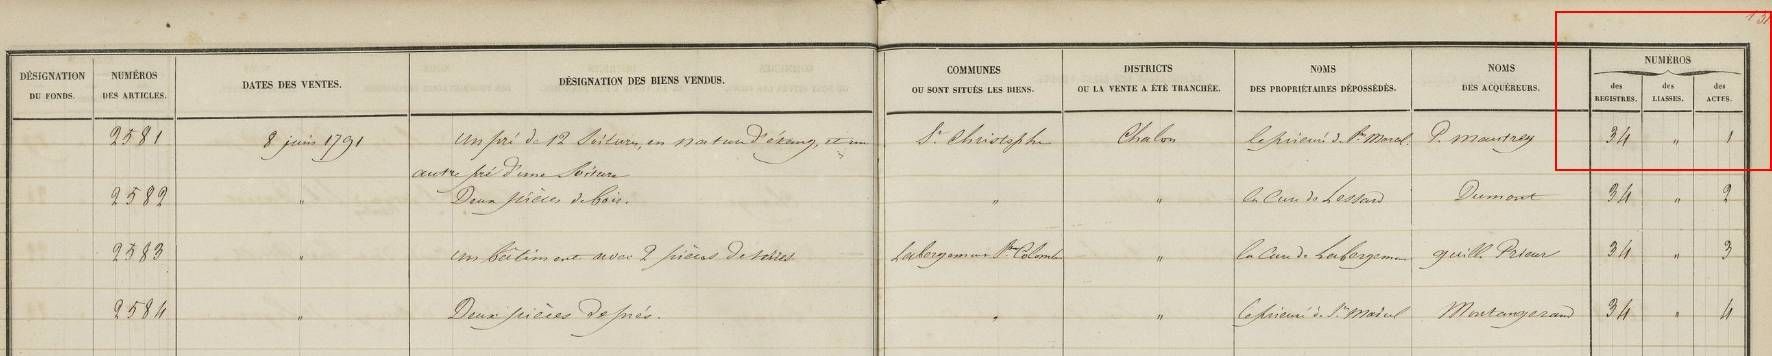 NUMÉROS
DÉSIGNATION NUMÉROS DATES DES VENTES. DÉSIGNATION DES BIENS VENDUS. COMMUNES DISTRICTS NOMS NOMS des des des
DU FONDS. DES ARTICLES. OU SONT SITUÉS LES BIENS. OU LA VENTE A ÉTÉ TRANCHÉE. DES PROPRIÉTAIRES DÉPOSSÉDÉS. DES ACQUÉREURS. REGISTRES. LIASSES. ACTES.
2581 8 juin 1791 Un pré de 12 Soitures, en nature d'étang, et un St Christophe Chalon le prieuré de St Marcel. P. Mautrey 34 " 1
autre pré d'une Soiture
2582 " Deux pièces de bois. " " la Cure de Lessard Dumont 34 " 2
2583 " un bâtiment avec 2 pièces de terres Labergement Ste Colombe " la Cure de Labergement guill. Prieur 34 " 3
2584 " Deux pièces de prés. " " le prieuré de St Marcel Montangerand 34 " 4